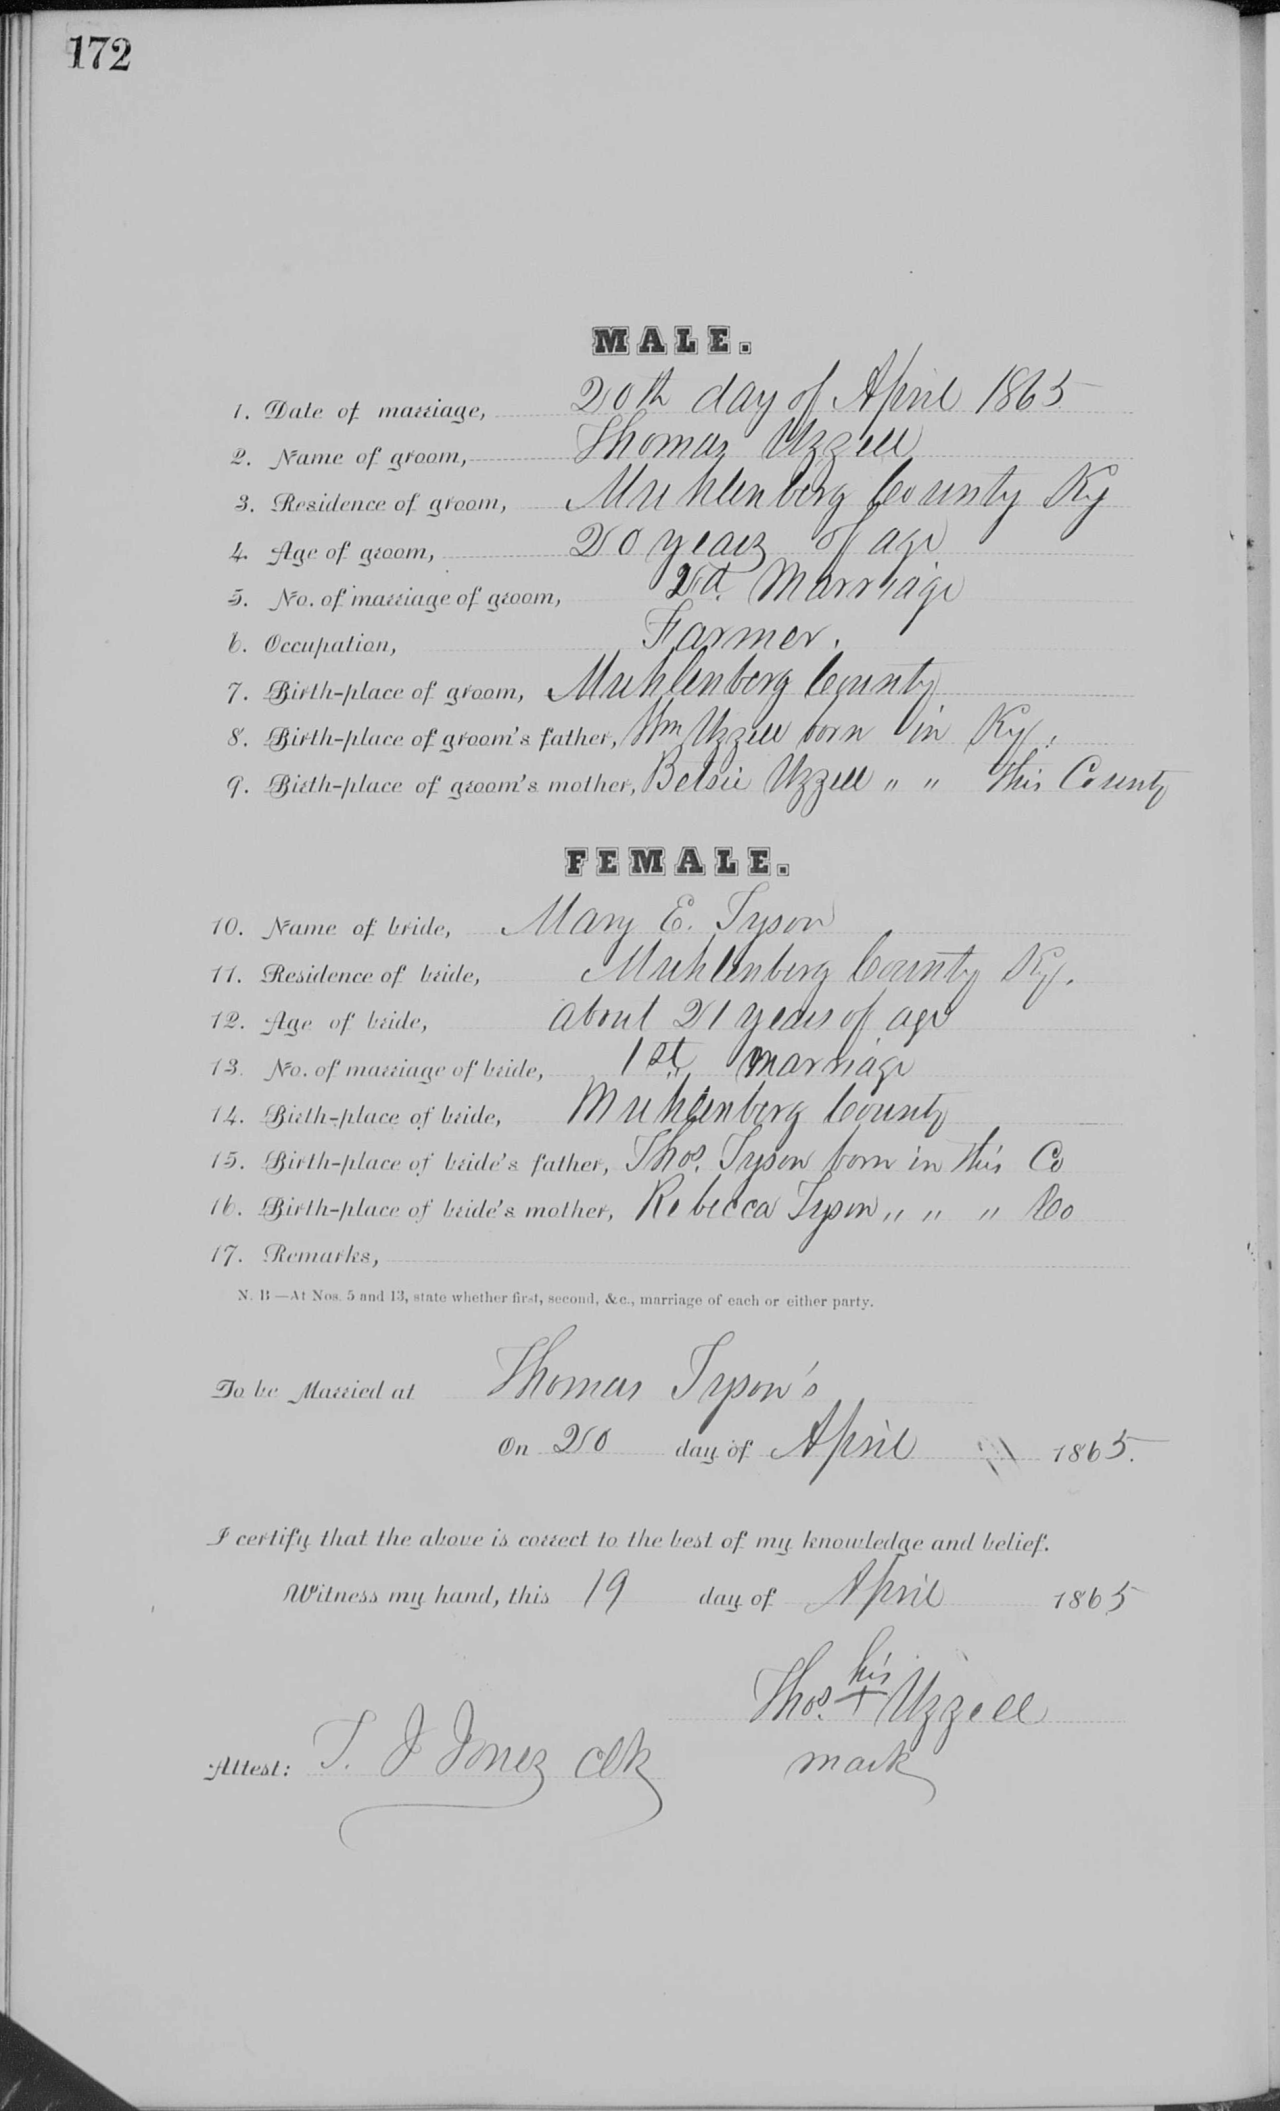 172
MALE.
1. Date of marriage, 20th day of April 1865
2. Name of groom, Thomas Uzzell
3. Residence of groom, Muhlenberg County Ky
4. Age of groom, 20 years of age
5. No. of marriage of groom, 2d. Marriage
6. Occupation, Farmer.
7. Birth-place of groom, Muhlenberg County
8. Birth-place of groom's father, Wm Uzzell born in Ky.
9. Birth-place of groom's mother, Betsie Uzzell " " this County
FEMALE.
10. Name of bride, Mary E. Tyson
11. Residence of bride, Muhlenberg County Ky.
12. Age of bride, about 21 years of age
13. No. of marriage of bride, 1st marriage
14. Birth-place of bride, Muhlenberg County
15. Birth-place of bride's father, Thos. Tyson born in this Co
16. Birth-place of bride's mother, Rebecca Tyson " " " Co
17. Remarks,
N. B—At Nos. 5 and 13, state whether first, second, &c., marriage of each or either party.
To be Married at Thomas Tyson's
On 20 day of April 1865.
I certify that the above is correct to the best of my knowledge and belief.
Witness my hand, this 19 day of April 1865
his
Thos. + Uzzell
Attest: T. J Jones Clk mark